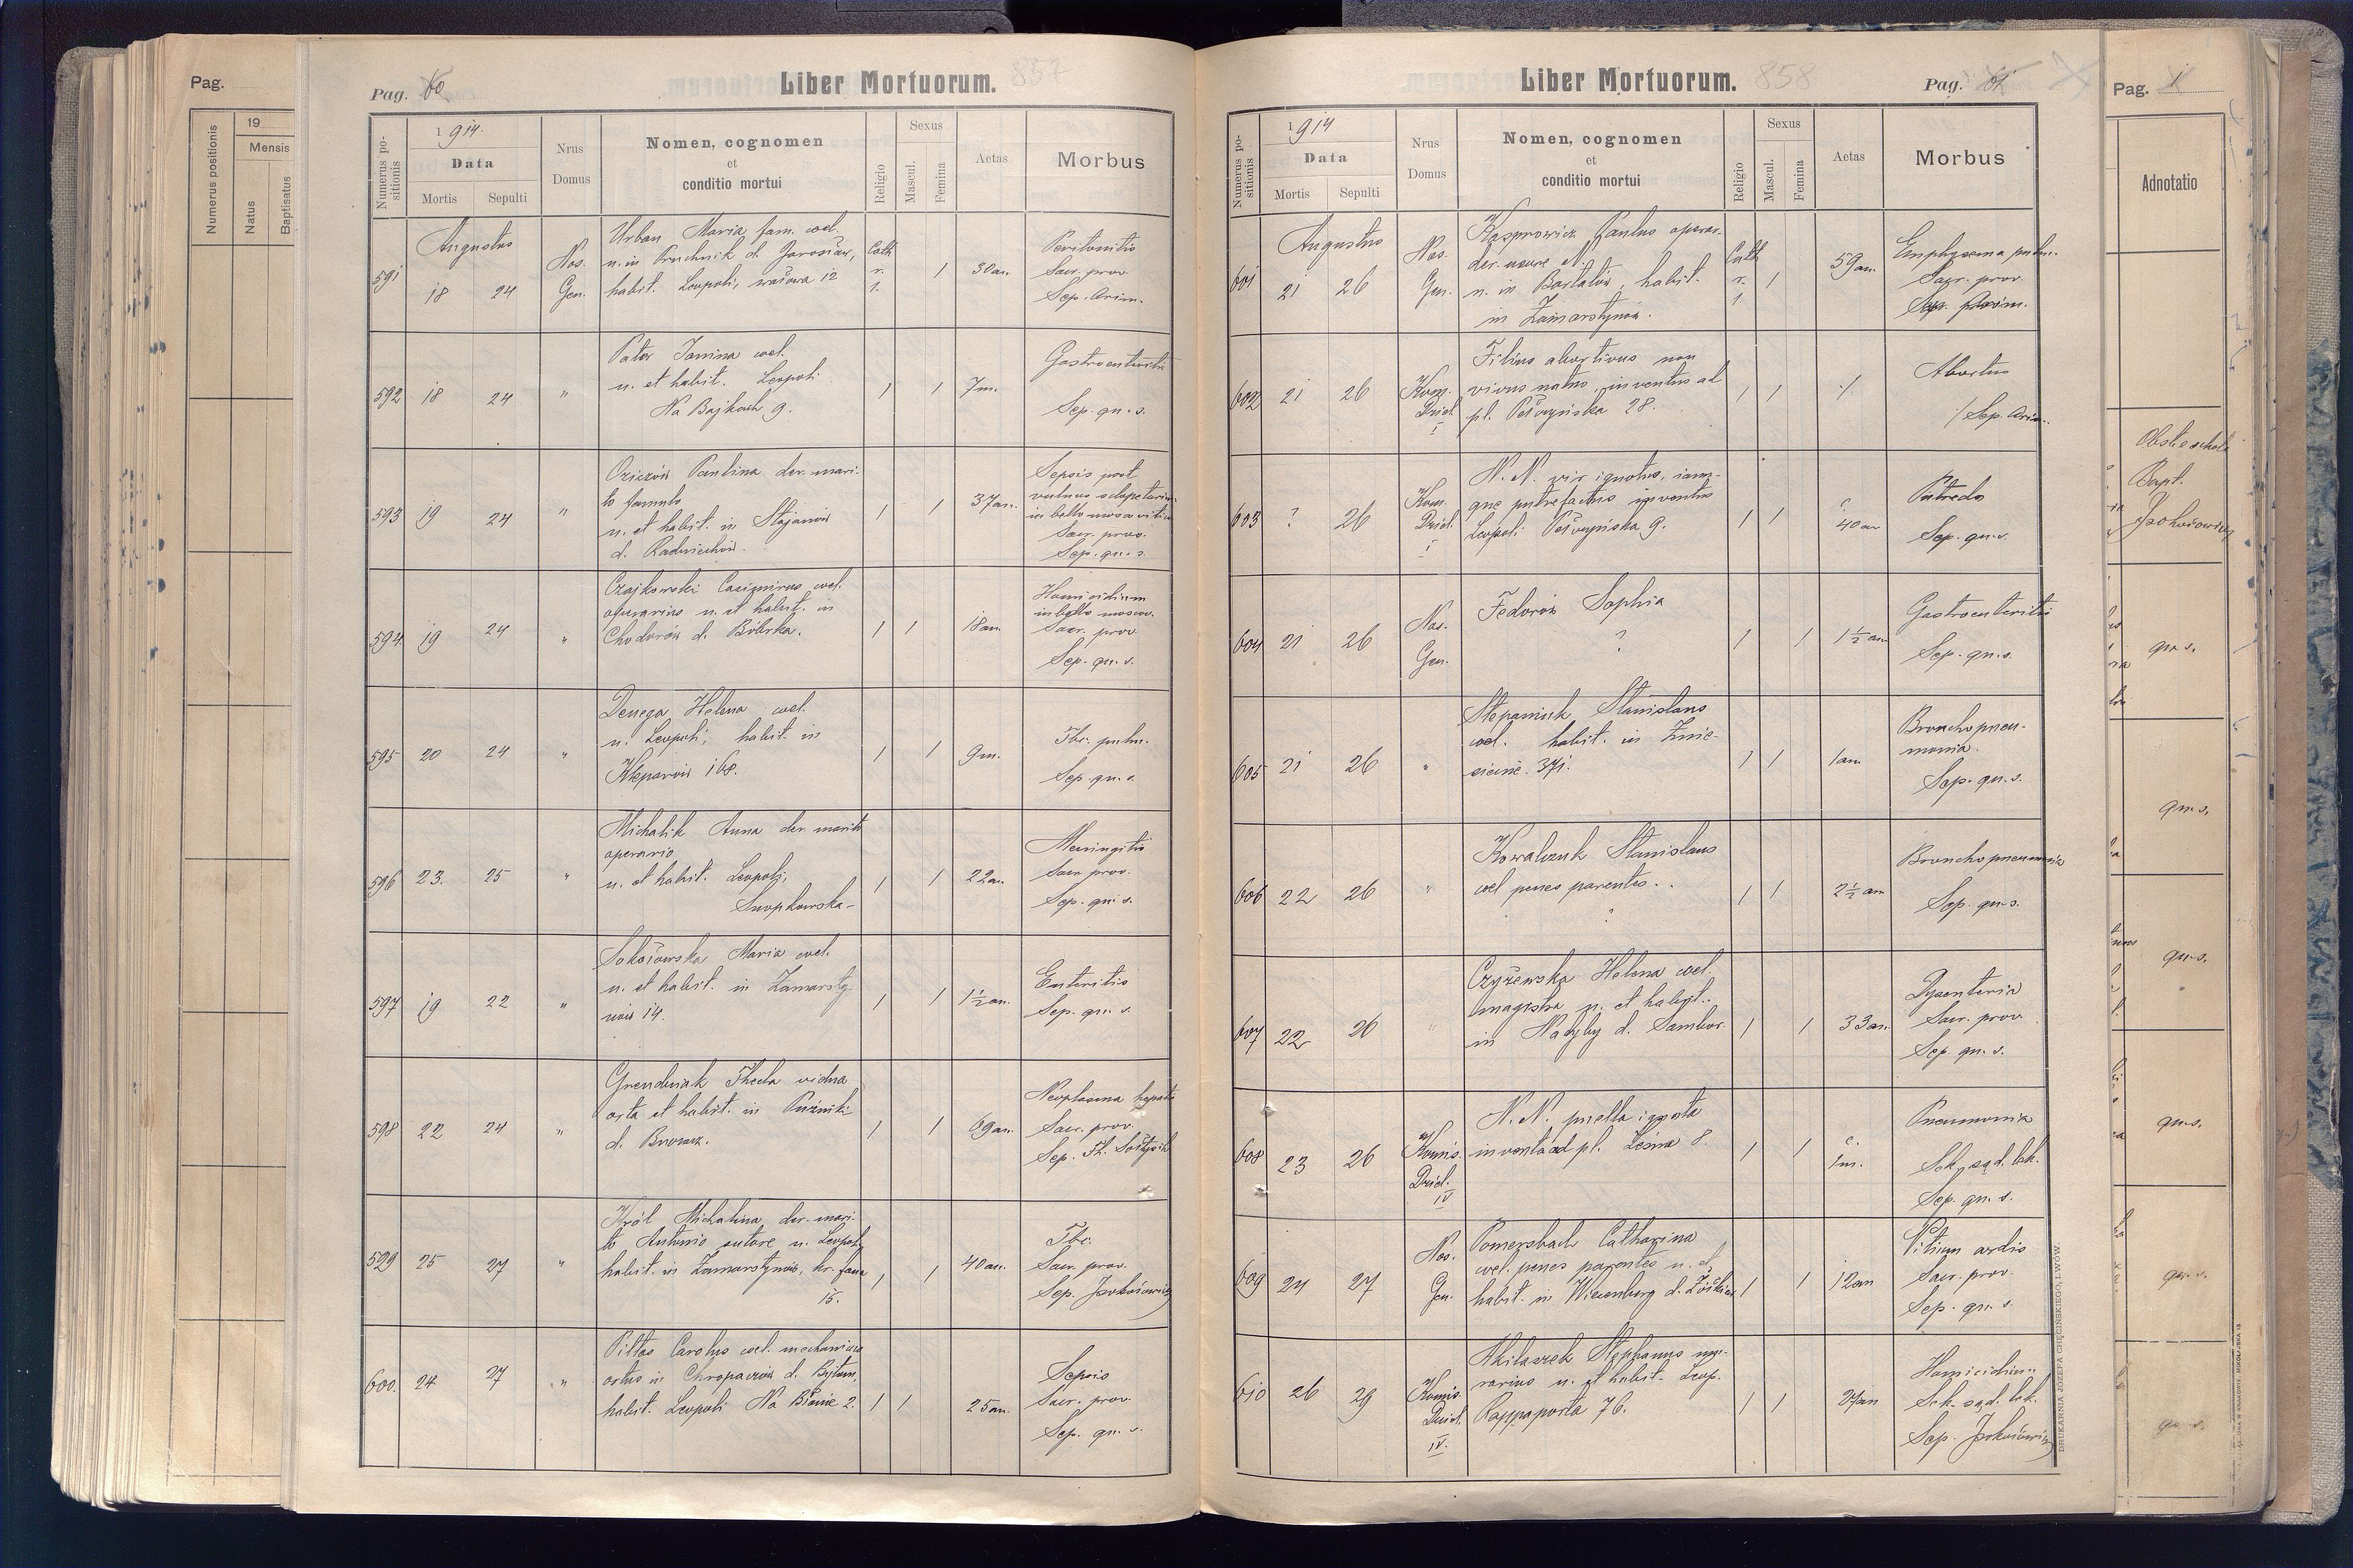 Pag.
Numerus positionis
19
Mensis
Natus
Baptisatus
Pag. 60
Liber Mortuorum. 857
Numerus positionis
1914.
Data
Mortis
Sepulti
Nrus Domus
Nomen, cognomen
et
conditio mortui
Religio
Sexus
Mascul.
Femina
Aetas
Morbus
Augustus
591
18 24
Nos.
Gen.
Urban Maria fam. coel.
n. in Pruchnik d. Jarosław,
habit. Leopoli,
12
Cath
r.
l.
1
30 an.
Peritonitis
Sacr. prov.
Sep.
592
18 24 "
Pater Janina coel.
n. et habit. Leopoli
Na Bajkach 9.
1 1 7 m.
Gastroenteritis
Sep. qu. s.
593
19 24 "
Paulina der. mari-
to famulo
n. et habit. in Stojanów
d. Radziechów.
1 1 37 an.
Sepsis post
vulnus sclopetarium
in bello
Sacr. prov.
Sep. qu. s.
594
19 24 "
Czajkowski Casimirus coel.
operarius n. et habit. in
Chodorów d. Bóbrka.
1 1 18 an.
Homicidium
in bello moscov.
Sacr. prov.
Sep. qu. s.
595
20 24 "
Denega Helena coel.
n. Leopoli, habit. in
Kleparów 168.
1 1 9 m.
Tbc. pulm.
Sep. qu. s.
596
23. 25 "
Michalik Anna der. marito
operario
n. et habit. Leopoli,
Snopkowska-
1 1 22 an.
Meningitis
Sacr. prov.
Sep. qu. s.
597
19 22 "
Sokołowska Maria coel.
n. et habit. in Zamarsty-
nów 14.
1 1 1½ an.
Enteritis
Sep. qu. s.
598
22 24 "
Thecla vidua
orta et habit. in Puźniki
d.
1 1 69 an.
Neoplasma hepatis
Sacr. prov.
Sep. Th. Sołtysik
599
25 27 "
Król Michalina der. mari-
to Antonio sutore n. Leopoli
habit. in Zamarstynów,
15.
1 1 40 an.
Tbc.
Sacr. prov.
Sep.
600.
24 27 "
Carolus coel. mechanicus
ortus in Chropaczów d. Bytom,
habit. Leopoli Na Błonie 2.
1 1 25 an.
Sepsis
Sacr. prov.
Sep. qu. s.
Liber Mortuorum. 858
Pag. 61
Numerus positionis
1914
Data
Mortis
Sepulti
Nrus Domus
Nomen, cognomen
et
conditio mortui
Religio
Sexus
Mascul.
Femina
Aetas
Morbus
Augustus
601
21 26
Nos.
Gen.
Kasprowicz Paulus operar.
der. uxore N.
n. in Bartatów, habit.
in Zamarstynów.
Cath
r.
l.
1
59 an.
Emphysema pulm.
Sacr. prov.
Sep.
602
21 26
Kom.
Dziel.
I
Filius abortivus non
vivus natus, inventus ad
pl. Pełczyńska 28.
1 1 ·/.
Abortus
Sep.
603
? 26
Kom.
Dziel.
I
N. N. vir ignotus, iam-
que putrefactus inventus
Leopoli Pełczyńska 9.
1 1
c.
40 an
Putredo
Sep. qu. s.
604
21 26
Nos.
Gen.
Fedorów Sophia
?
1 1 1½ an
Gastroenteritis
Sep. qu. s.
605
21 26 "
Stepaniuk Stanislaus
coel. habit. in Znie-
sienie. 371.
1 1 1 an
Bronchopneu-
monia.
Sep. qu. s.
606
22 26 "
Kowalczuk Stanislaus
coel penes parentes.
?
1 1 2½ an
Bronchopneumonia
Sep. qu. s.
607
22 26 "
Czyżewska Helena coel.
magistra n. et habit.
in Nadyby d. Sambor.
1 1 33 an.
Dysenteria
Sacr. prov.
Sep. qu. s.
608
23 26
Komis.
Dziel.
IV
N. N. puella ignota
inventa ad pl. Leśna 8.
1 1
c.
1 m.
Pneumonia
Sek. sąd. lek.
Sep. qu. s.
609
24 27
Nos.
Gen.
Pomersbach Catharina
coel. penes parentes n. et
habit. in Wiesenberg d. Żółkiew
1 1 12 an
Vitium cordis
Sacr. prov.
Sep. qu. s.
610
26 29
Komis.
Dziel.
IV.
Stephanus
n. et habit. Leop.
Rappaporta 76.
1 1
Homicidium
Sek. sąd. lek.
Sep.
DRUKARNIA JÓZEFA CHĘCIŃSKIEGO, LWÓW.
Pag. 1
Adnotatio
Bapt.
qu. s.
qu. s.
qu. s.
qu. s.
qu. s.
qu. s.